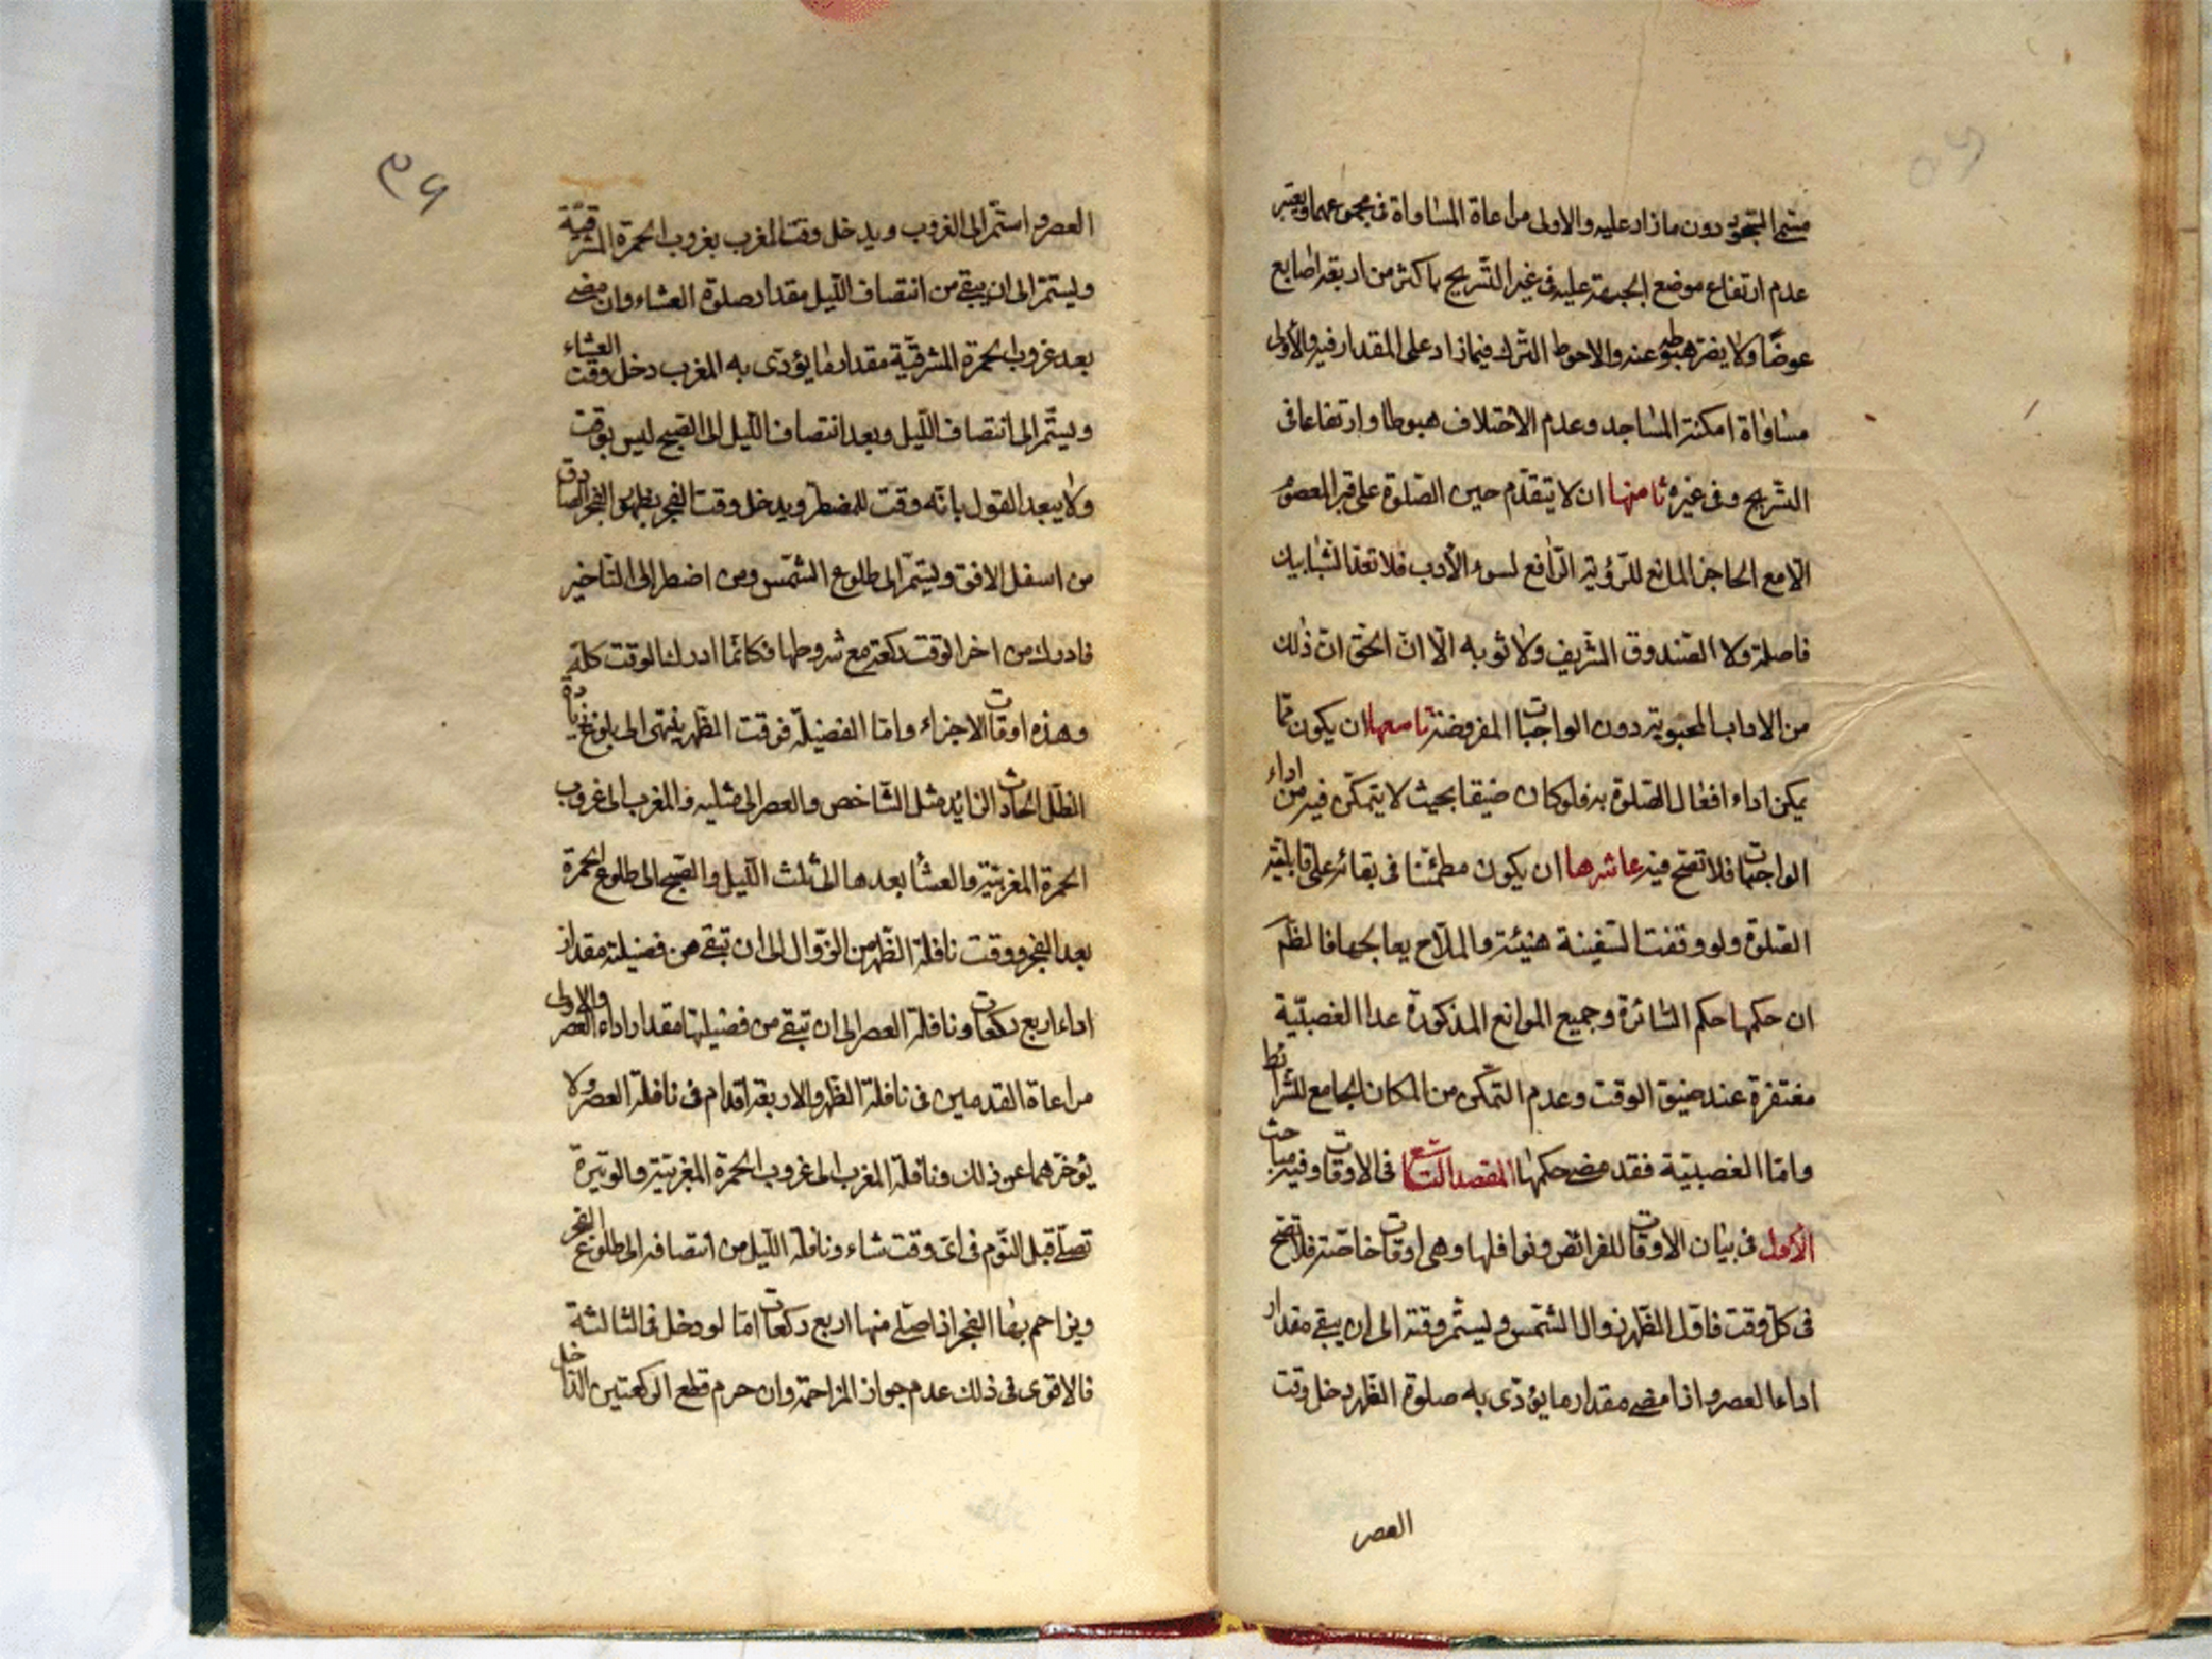 مسمى السجود دون ما زاد عليه والاولى مراعاة المساواة فى مجموعهما ويعتبر
عدم ارتفاع موضع الجبهة عليه فى غير التسريح باكثر من اربعة اصابع
عوضًا ولا يضر هبوطه عنه والاحوط الترك فيما زاد على المقدار فيه والأولى
مساواة امكنة المساجد وعدم الاختلاف هبوطا وارتفاعا فى
التسريح وفى غيره ثامنها ان لا يتقدم حين الصلوة على قبر المعصوم
الا مع الحاجز المانع للرؤية الرافع لسوء الأدب فلا تعد الشبابيك
فاصلة ولا الصندوق الشريف ولا ثوبه الّا انّ الحق انّ ذلك
من الاداب المحبوبة دون الواجبات المفروضة تاسعها ان يكون مما
يمكن اداء افعال الصلوة به فلو كان ضيقا بحيث لا يتمكّن فيه من اداء
الواجبات فلا تصح فيه عاشرها ان يكون مطمئنا فى بقائه على قابلية
الصلوة ولو وقفت السفينة هنيئة والملاح يعالجها فالظم
ان حكمها حكم السائرة وجميع الموانع المذكورة عدا الغصبيّة
مغتفرة عند ضيق الوقت وعدم التمكّن من المكان الجامع للشرائط
وامّا الغصبيّة فقد مضى حكمها المقصد التاسع فى الاوقات وفيه مباحث
الأول فى بيان الاوقات للفرائض ونوافلها وهى اوقات خاصة فلا تصح
فى كل وقت فاوّل الظهر زوال الشمس ويستمر وقته الى ان يبقى مقدار
اداء العصر واذا مضى مقدار ما يؤدّى به صلوة الظهر دخل وقت
العصر
٣۶
العصر واستمر الى الغروب ويدخل وقت المغرب بغروب الحمرة المشرقيّة
ويستمر الى ان يبقى من انتصاف اللّيل مقدار صلوة العشاء وان مضى
بعد غروب الحمرة المشرقيّة مقدار ما يؤدّى به المغرب دخل وقت العشاء
ويستمر الى انتصاف اللّيل وبعد انتصاف اللّيل الى الصبح ليس بوقت
ولا يبعد القول بانّه وقت للمضطر ويدخل وقت الفجر بظهور الفجر الصادق
من اسفل الافق ويستمر الى طلوع الشمس ومن اضطر الى التاخير
فادرك من اخر الوقت ركعة مع شروطها فكانّما ادرك الوقت كلّه
وهذه اوقات الاجزاء وامّا الفضيلة فوقت الظهر ينتهى الى بلوغ زيادة
الظل الحادث الزايد مثل الشاخص والعصر الى مثليه والمغرب الى غروب
الحمرة المغربيّة والعشا بعدها الى ثلث اللّيل والصبح الى طلوع الحمرة
بعد الفجر ووقت نافلة الظهر من الزوال الى ان تبقى من فضيلته مقدار
اداء اربع ركعات ونافلة العصر الى ان تبقى من فضيلتها مقدار اداء العصر والاولى
مراعاة القدمين فى نافلة الظهر والاربعة اقدام فى نافلة العصر ولا
يؤخرهما عن ذلك ونافلة المغرب الى غروب الحمرة المغربيّة والوتيرة
تصلّى قبل النّوم فى اىّ وقت شاء ونافلة اللّيل من انتصافه الى طلوع الفجر
ويزاحم بها الفجر اذا صلّى منها اربع ركعات امّا لو دخل فى الثالثة
فالاقوى فى ذلك عدم جواز المزاحمة وان حرم قطع الركعتين الداخل